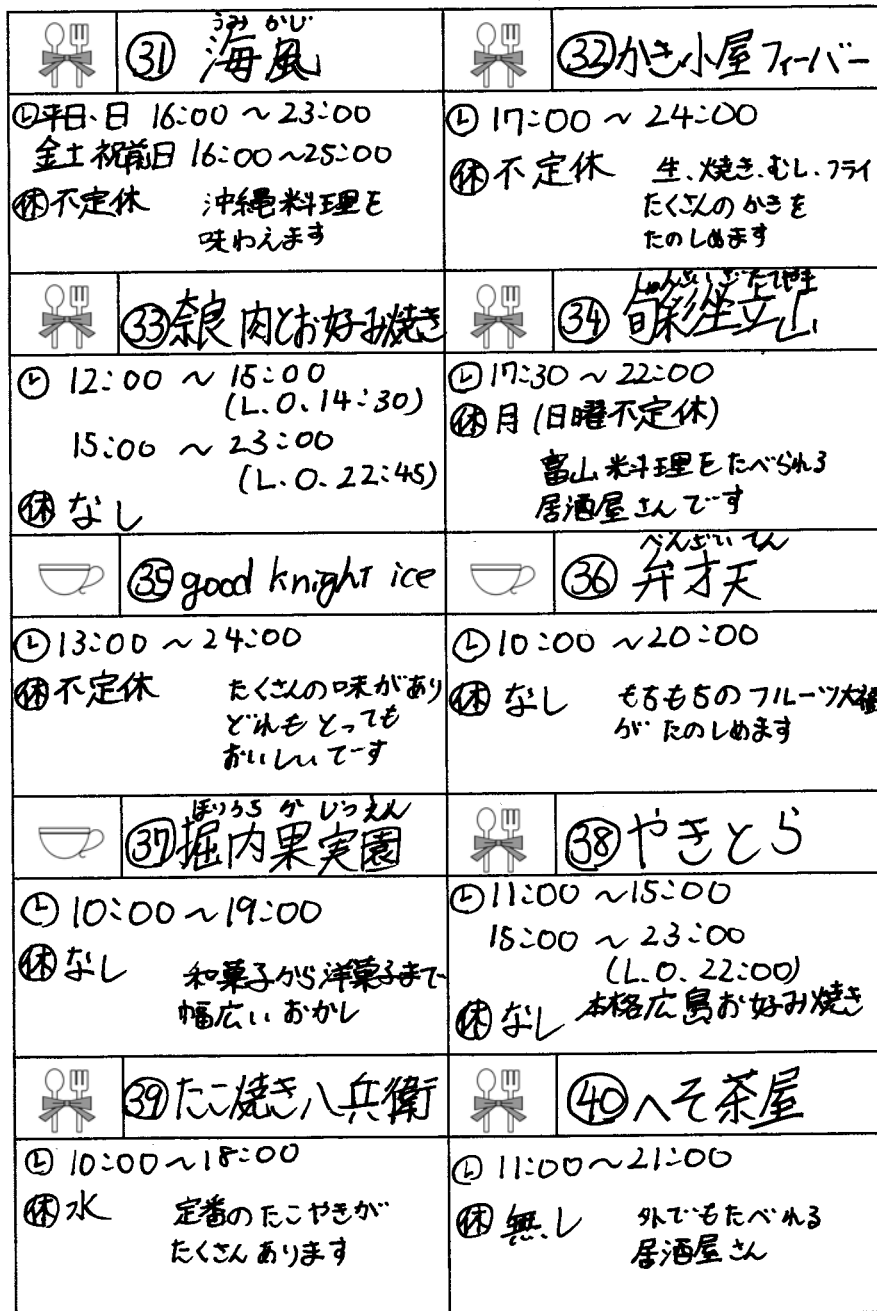 うみ かじ
㉛ 海風
Ⓛ平日、日 16:00 ~ 23:00
金土祝前日 16:00 ~25:00
㊡不定休 沖縄料理を
味わえます
㉜かき小屋フィーバー
Ⓛ 17:00 ~ 24:00
㊡不定休 生、焼き、むし、フライ
たくさんのかきを
たのしめます
㉝奈良 肉とお好み焼き
Ⓛ 12:00 ~ 15:00
(L.O.14:30)
15:00 ~ 23:00
(L.O.22:45)
㊡なし
しゅんさいざたてやま
㉞ 旬彩座立山
Ⓛ17:30 ~ 22:00
㊡月(日曜不定休)
富山料理をたべられる
居酒屋さんです
㉟good knight ice
Ⓛ13:00 ~ 24:00
㊡不定休 たくさんの味があり
どれもとっても
おいしいです
べんざいてん
㊱ 弁才天
Ⓛ10:00 ~20:00
㊡ なし もちもちのフルーツ大福
がたのしめます
ほりうち か じつえん
㊲堀内果実園
Ⓛ10:00 ~19:00
㊡なし 和菓子から洋菓子まで
幅広いおかし
㊳やきとら
Ⓛ11:00 ~15:00
15:00 ~ 23:00
(L.O.22:00)
㊡なし 本格広島お好み焼き
㊴たこ焼き八兵衛
Ⓛ 10:00~18:00
㊡水 定番のたこやきが
たくさんあります
㊵へそ茶屋
Ⓛ 11:00~21:00
㊡ 無し 外でもたべれる
居酒屋さん